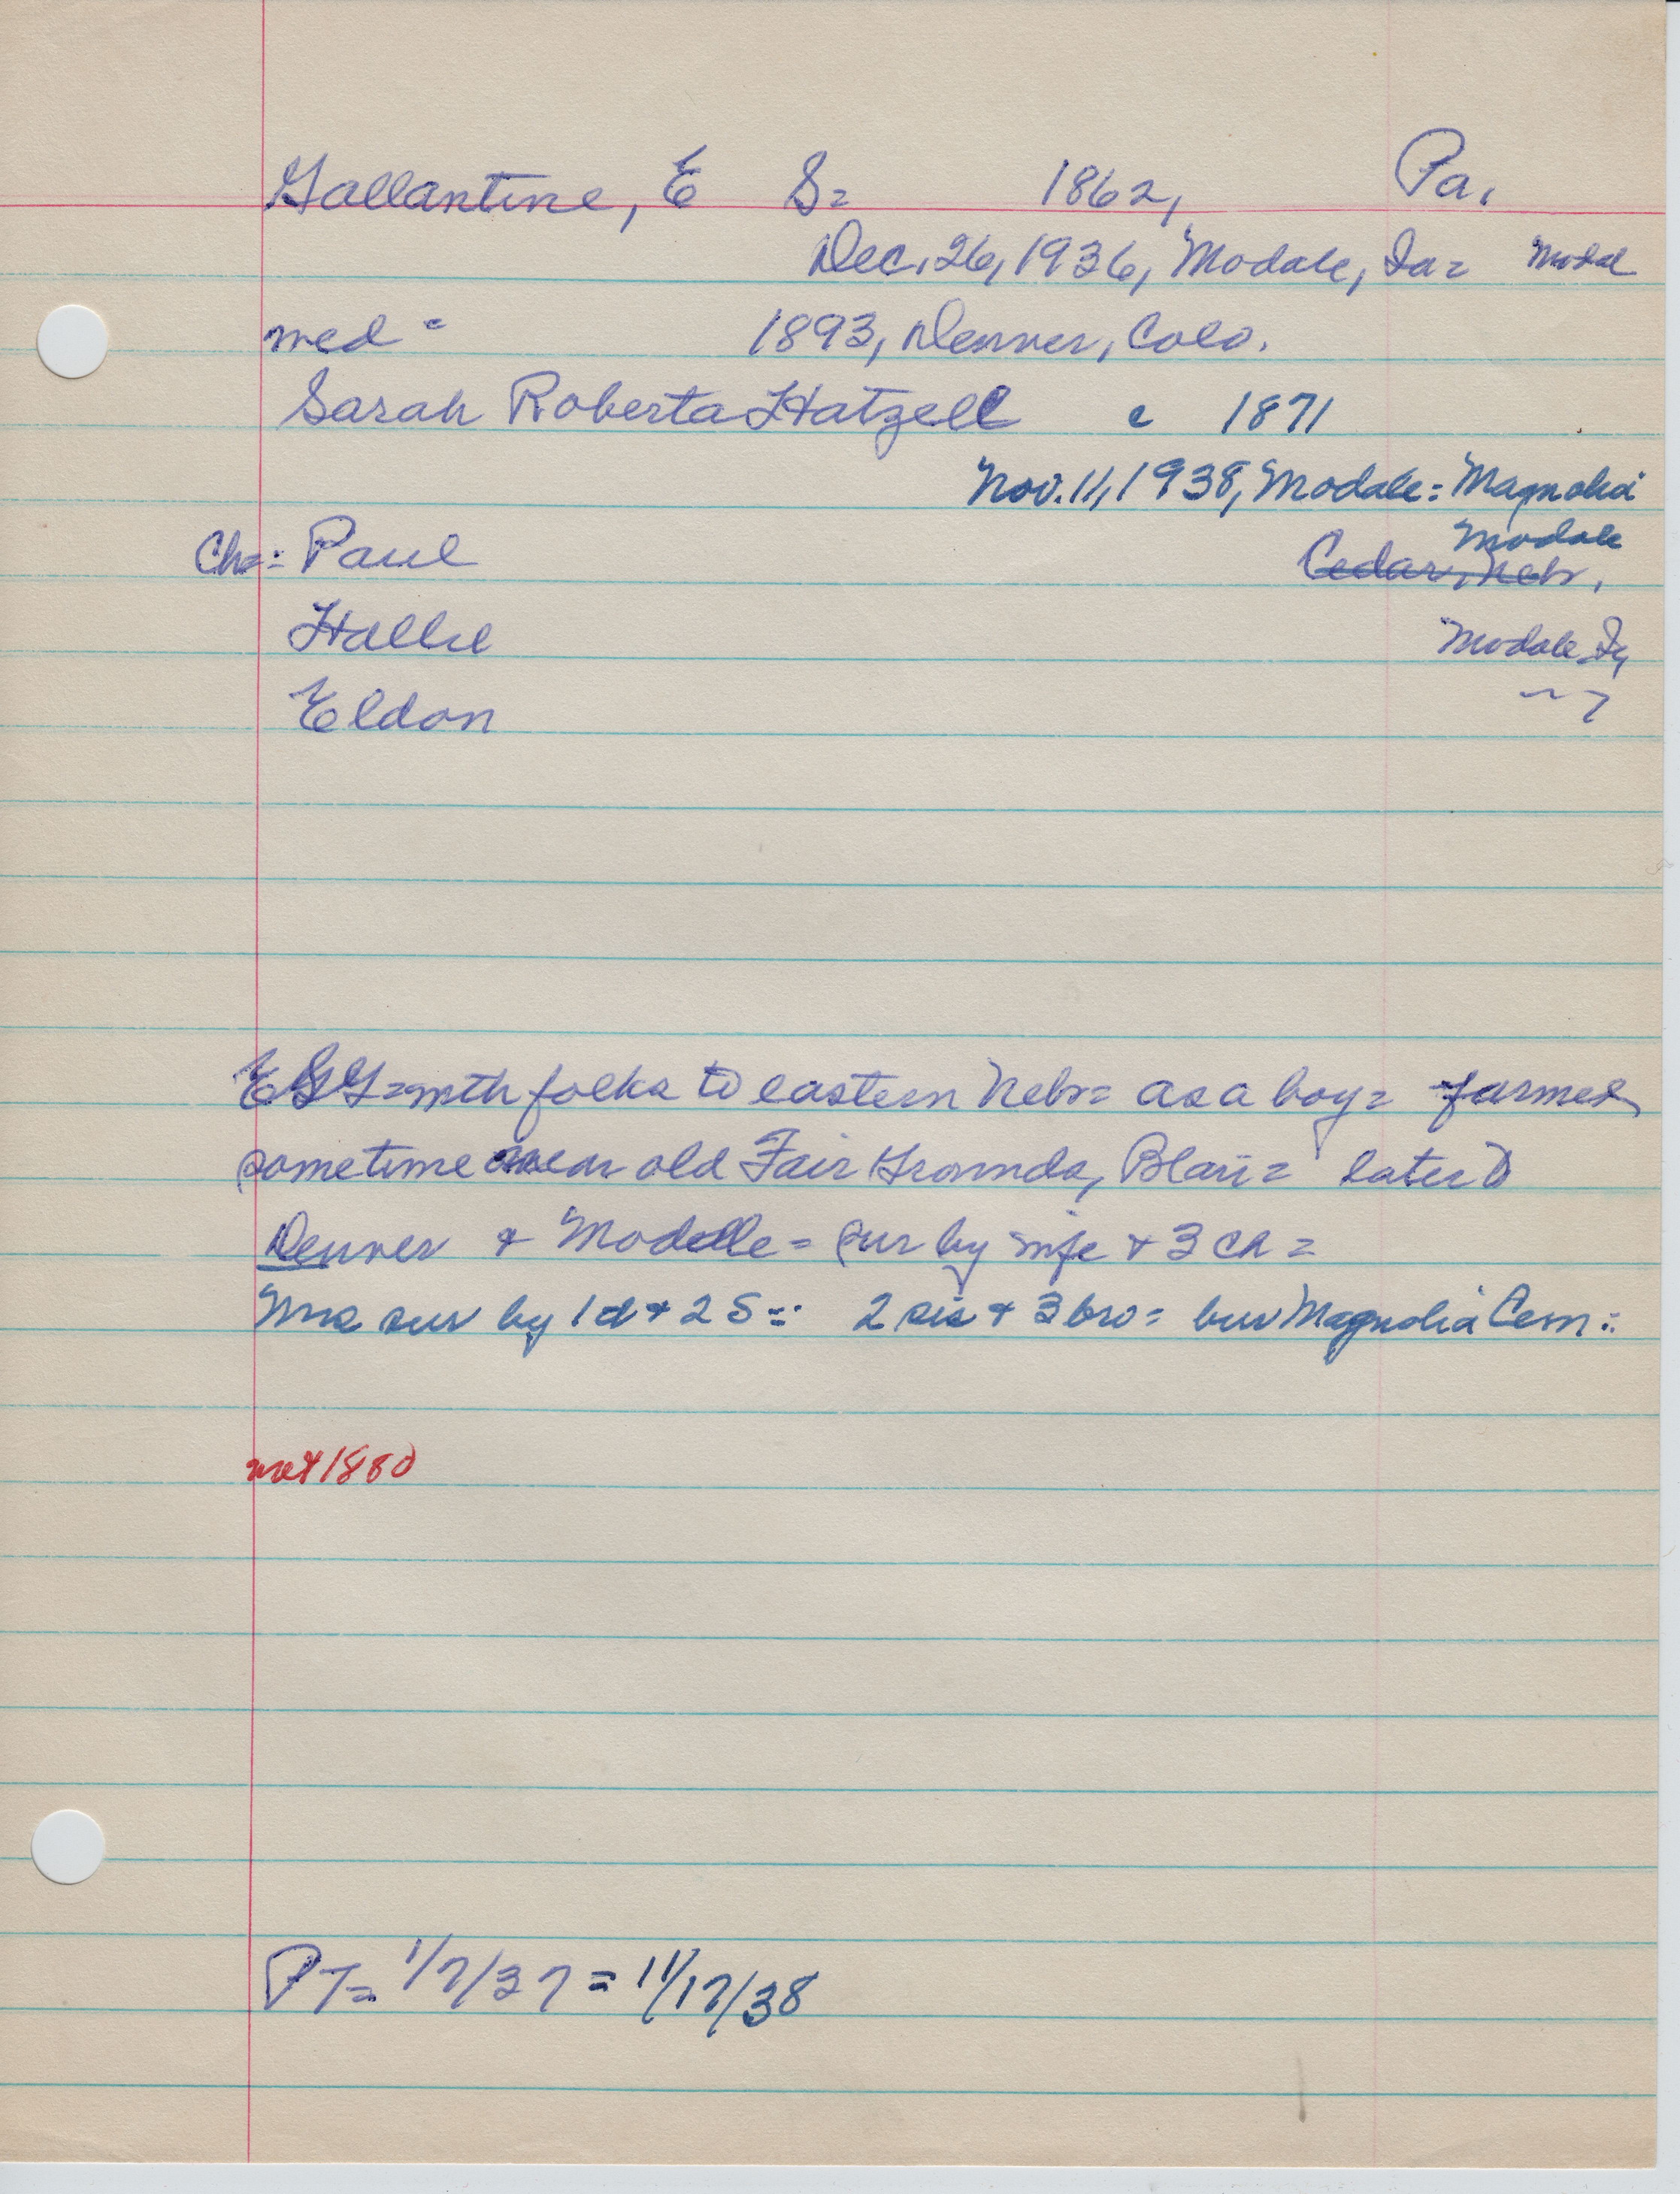 Gallantine, E S= 1862, Pa.
Dec. 26, 1936, Modale, Ia= Modal
med = 1893, Denver, Colo.
Sarah Roberta Hatzell c 1871
Nov. 11, 1938, Modale= Magnolia
Modale
Ch=: Paul Cedar, Neb.
Hallie Modale Ia
Eldon
ESG= with folks to eastern Nebr= as a boy= farmed
sometime near old Fair Grounds, Blair= later to
Denver & Modelle= sur by wife & 3 ch=
Mrs sur by 1 d & 2 S=: 2 sis & 3 bro= bur Magnolia Cem:.
not 1880
PT= 1/7/37 = 11/17/38